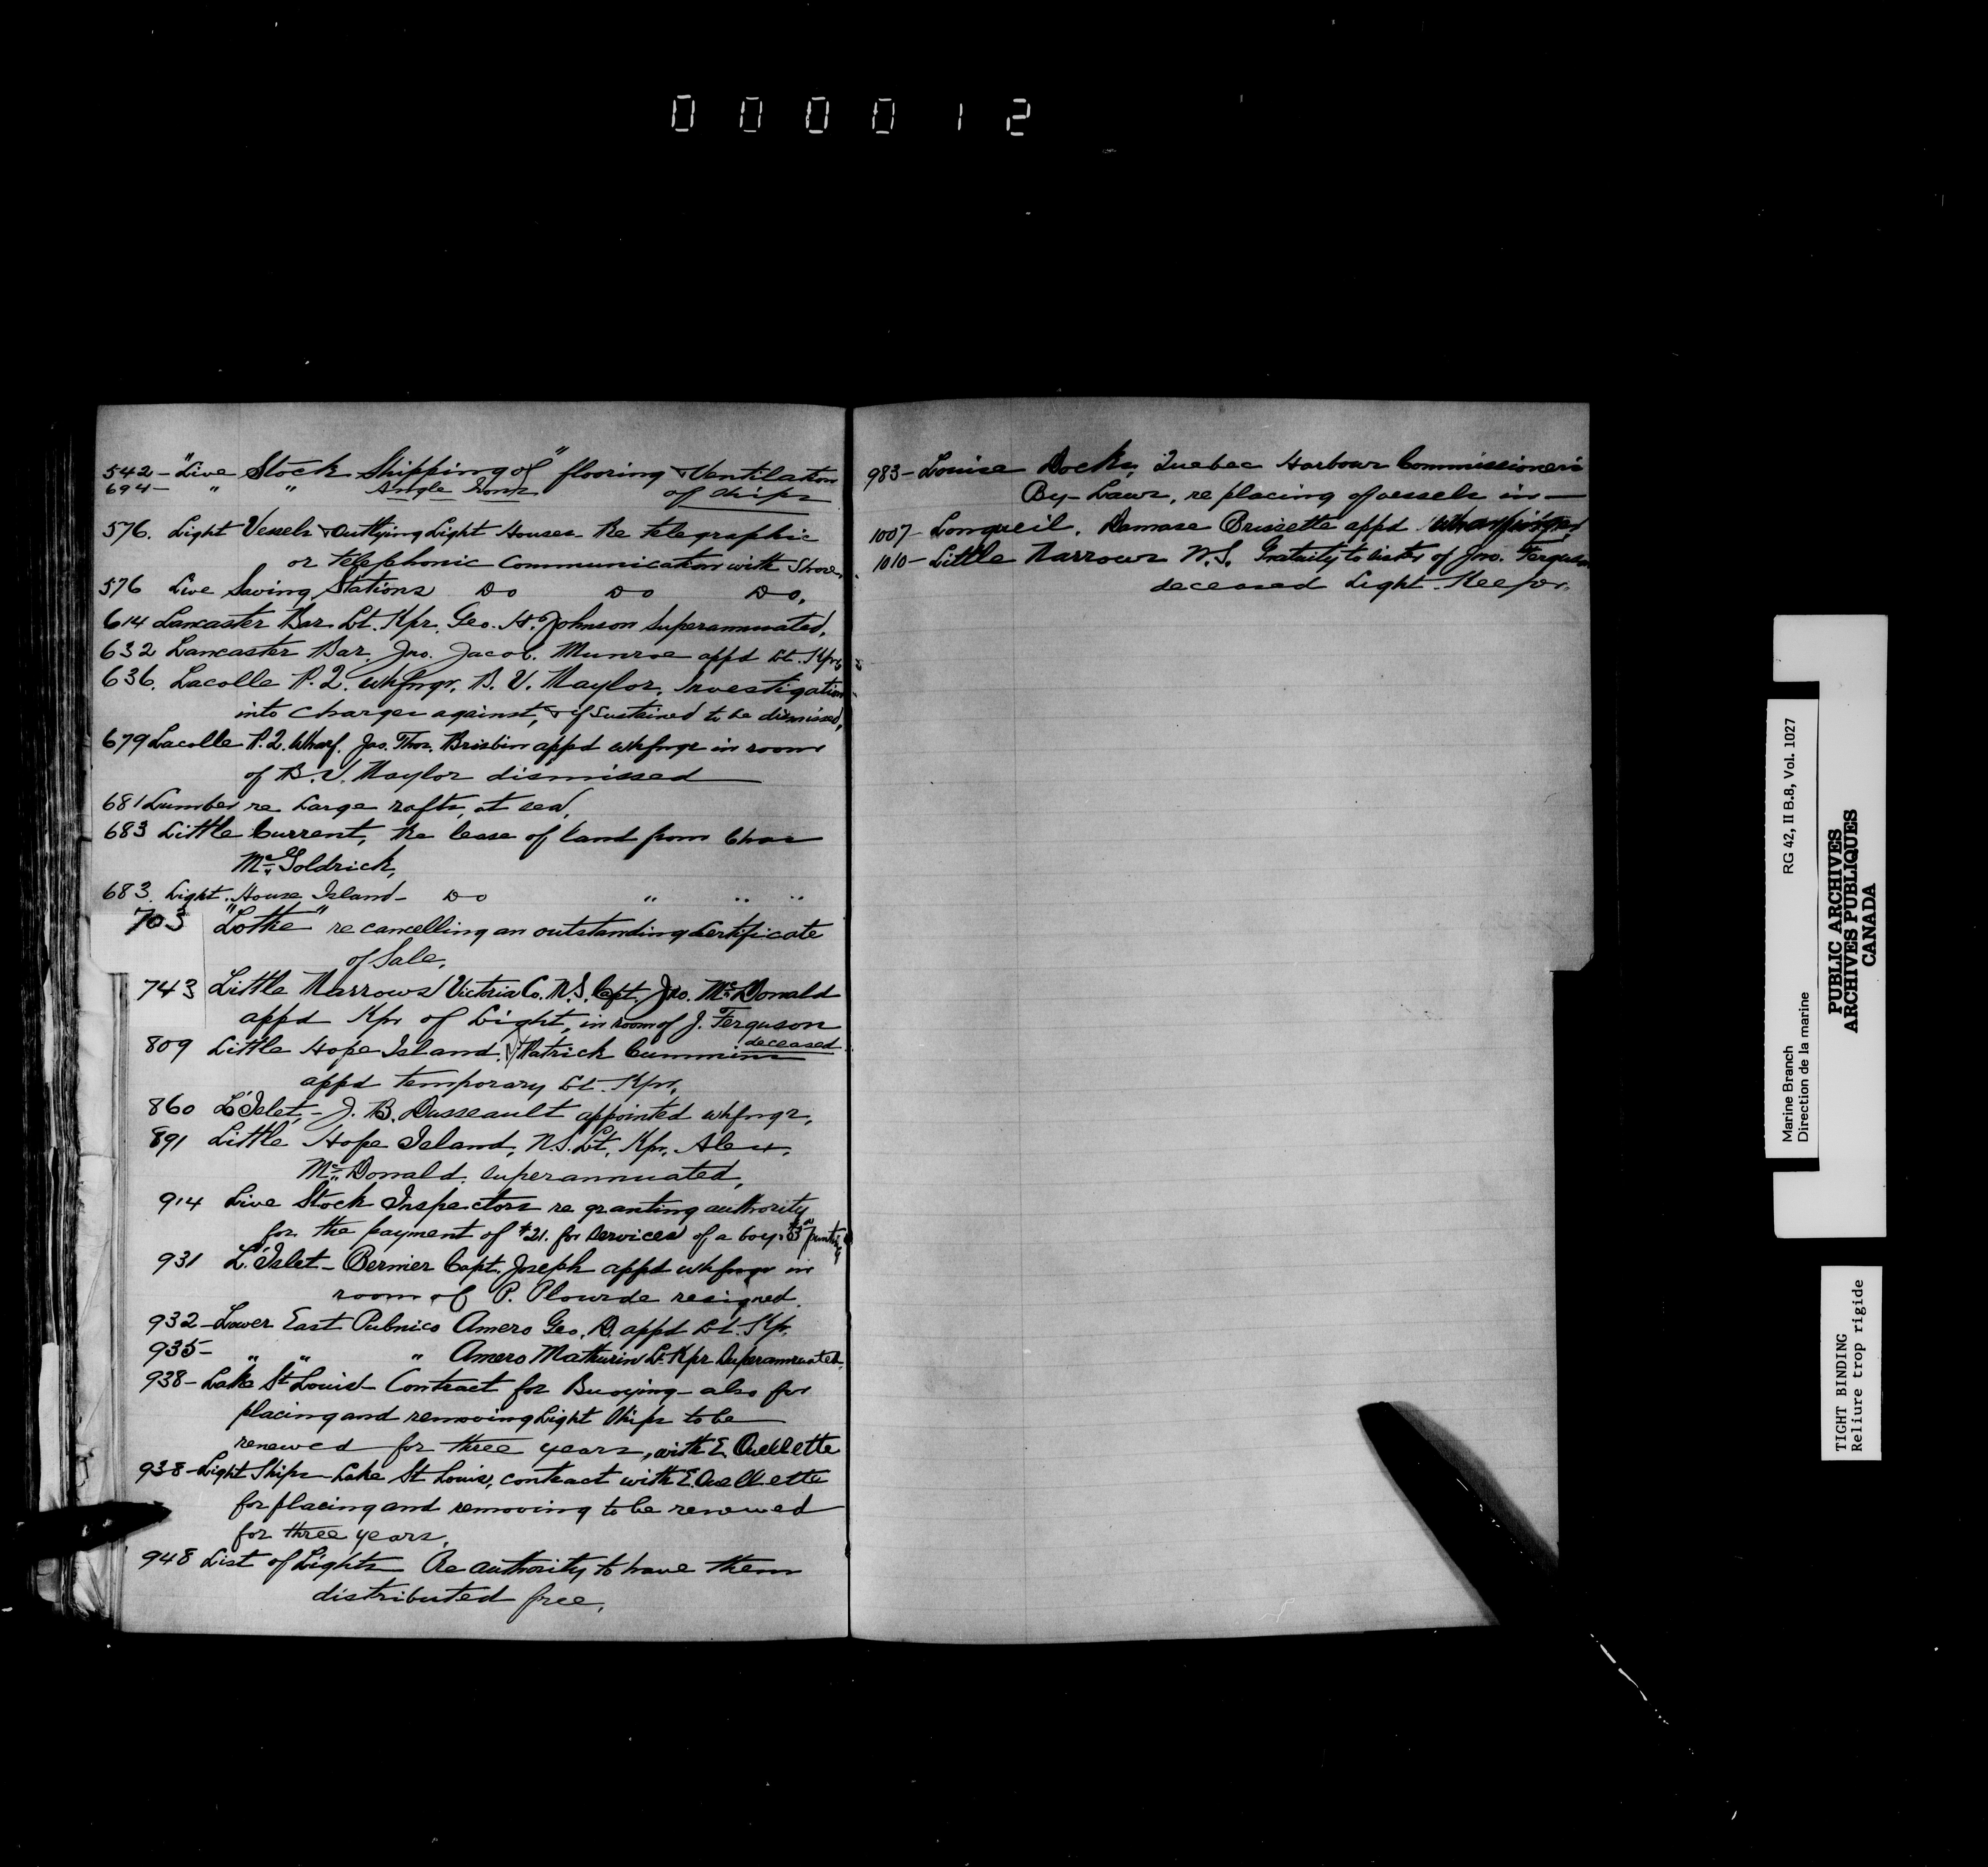 000012
542 - "Live Stock Shipping of" flooring & Ventilation
694 - " " Angle Irons of Ships
576. Light Vessels & Outlying Light Houses Re telegraphic
or telephonic Communication with Shore,
576 Live Saving Stations Do Do Do,
614 Lancaster Bar Lt. Kpr. Geo. H. Johnson Superannuated,
632 Lancaster Bar. Jno. Jacob. Munroe appd Lt. Kpr,
636. Lacolle P.Q. whfngr. B. V. Naylor, Investigation
into Charges against, & if Sustained to be dismissed,
679 Lacolle P.Q. Wharf. Jas. Thos. Brisbin appd whfngr in room
of B. V. Naylor dismissed
681 Lumber re Large rafts, at sea,
683 Little Current, Re lease of land from Chas
McGoldrick,
683. Light House Island - Do " " "
703 "Lothe" re cancelling an outstanding Certificate
of Sale,
743 Little Narrows Victoria Co. N.S. Capt. Jno. McDonald
appd Kpr of Light, in room of J. Ferguson
deceased
809 Little Hope Island. Patrick Cummins
appd temporary Lt. Kpr,
860 L'Islet, - J. B. Dusseault appointed whfngr,
891 Little Hope Island, N.S. Lt. Kpr. Alex.
McDonald. Superannuated,
914 Live Stock Inspectors re granting authority
for the payment of $21. for Services of a boy &
931 L'Islet - Bernier Capt. Joseph appd whfngr in
room of P. Plourde resigned.
932 - Lower East Pubnico Amero Geo. D. appd Lt. Kp.
935 - " " " Amero Mathurin Lt. Kpr Superannuated.
938 - Lake St Louis - Contract for Buoying - also for
placing and removing Light Ships to be
renewed for three years, with E Ouellette
938 - Light Ships Lake St Louis, contract with E. Ouellette
for placing and removing to be renewed
for three years.
948 List of Lights Re authority to have them
distributed free.
983 - Louise Docks, Quebec Harbour Commissioners
By-Laws, re placing of vessels in -
1007 - Longueil. Damase Brissette appd Wharfinger
1010 - Little Narrows N.S. Gratuity to of Jno. Ferguson
deceased Light Keeper.
Marine Branch RG 42, II B.8, Vol. 1027
Direction de la marine
PUBLIC ARCHIVES
ARCHIVES PUBLIQUES
CANADA
TIGHT BINDING
Reliure trop rigide